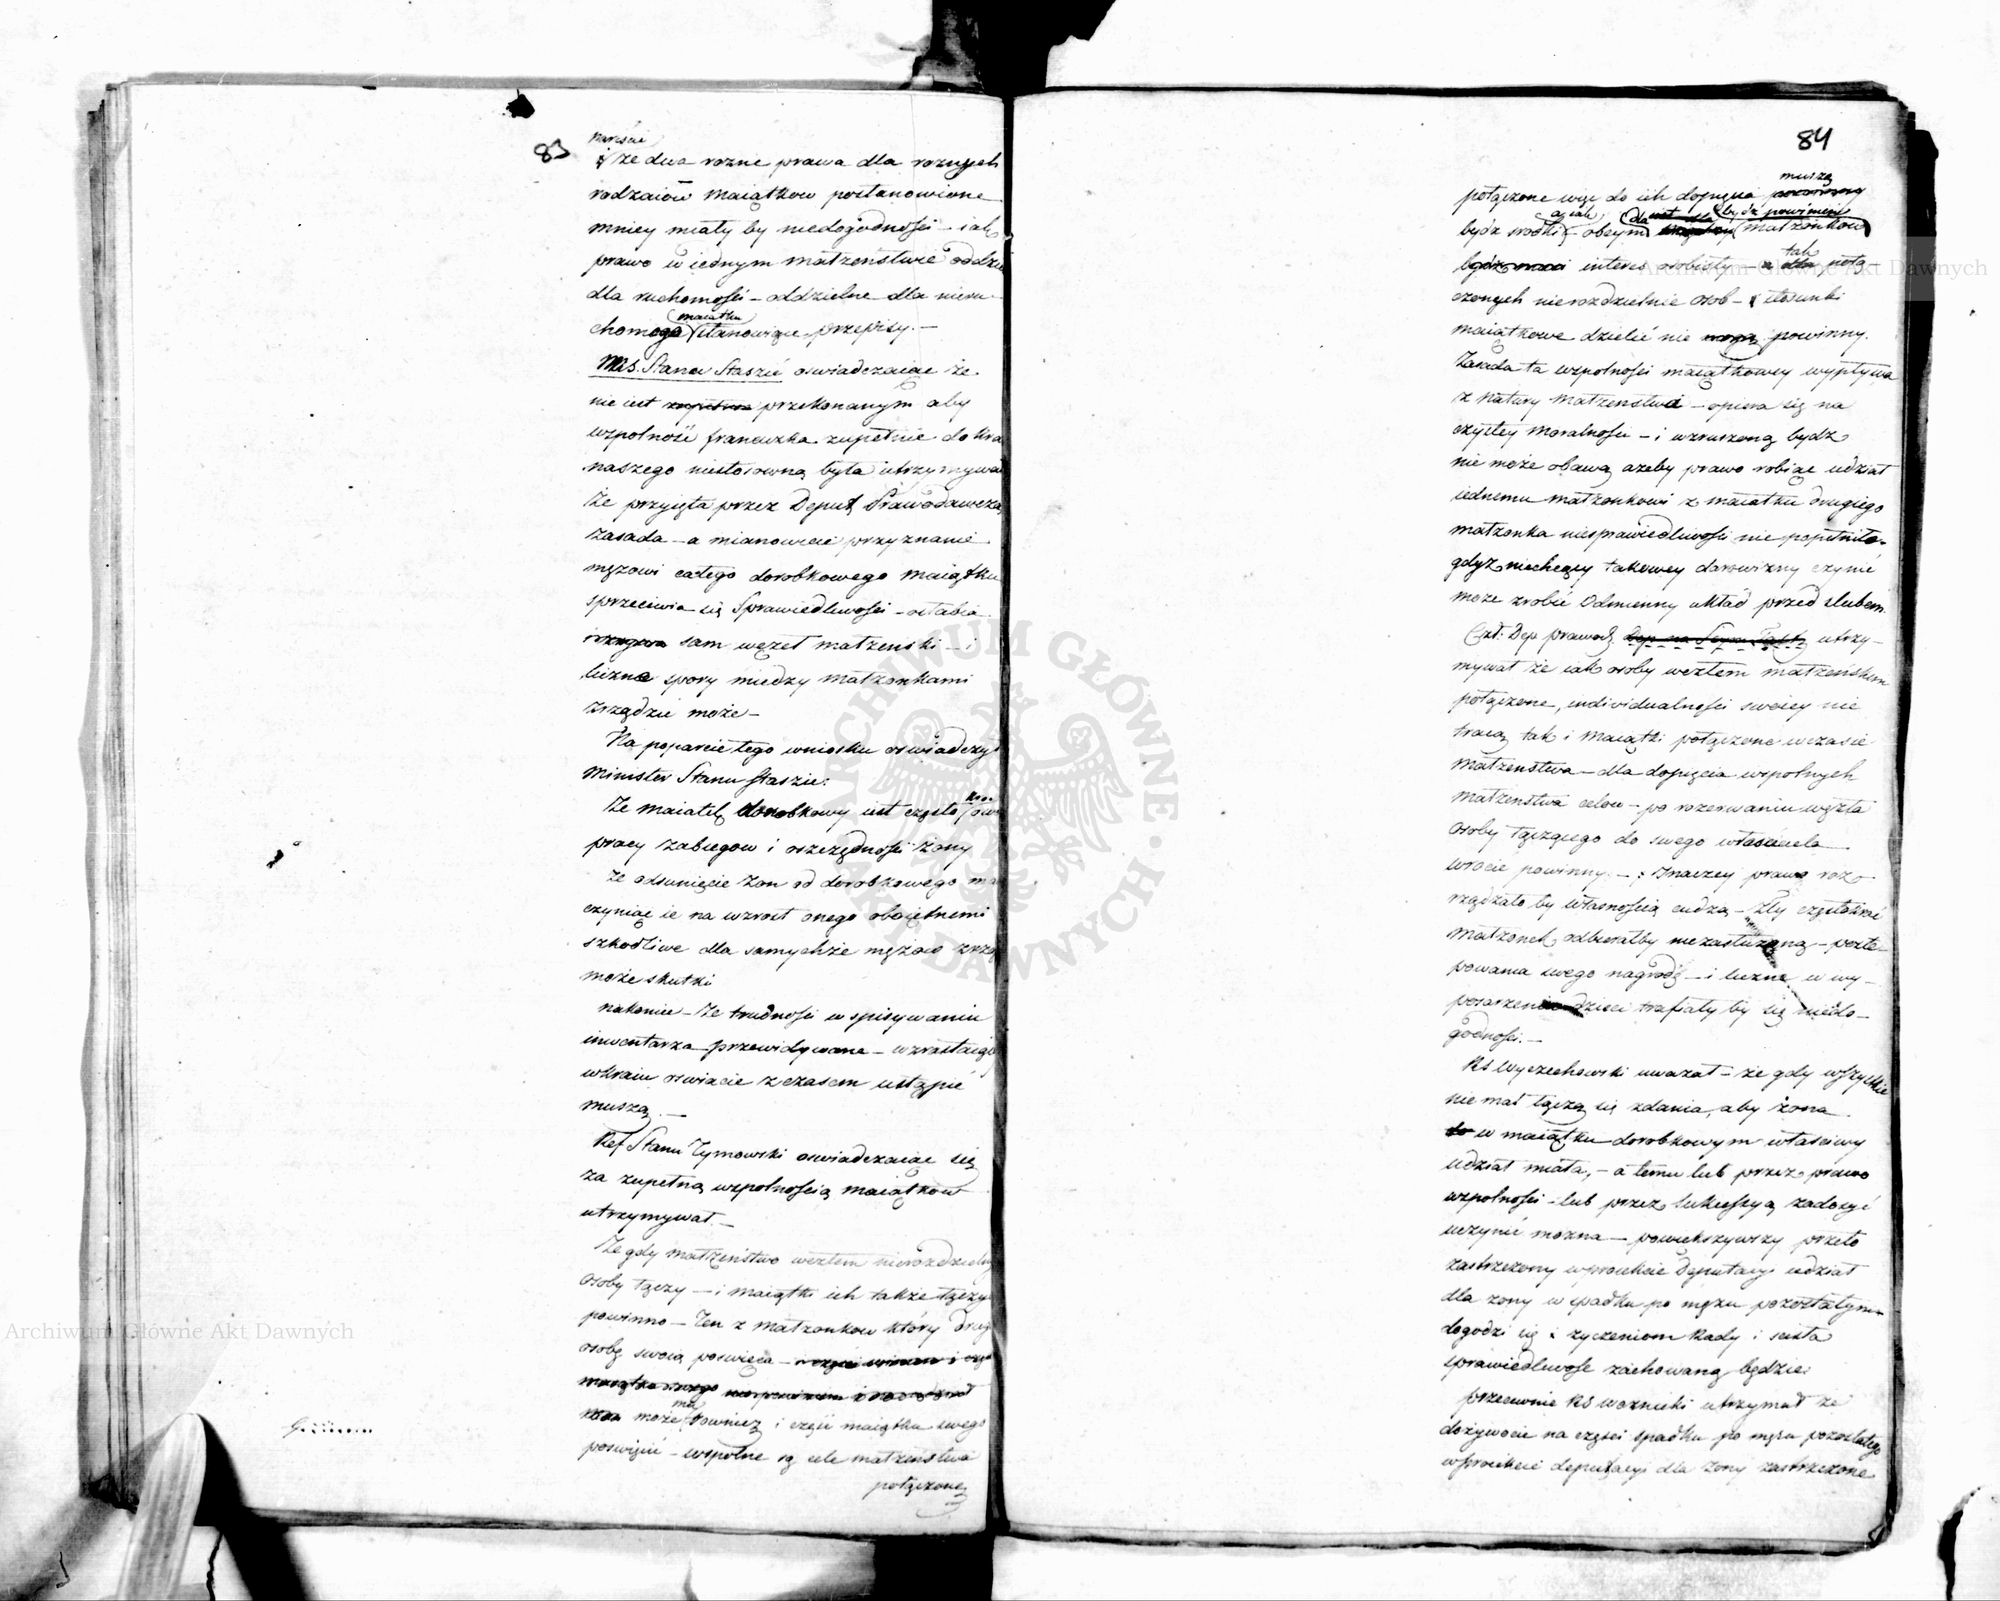 83
nareście
że dwa rozne prawa dla roznych
rodzaiow maiątkow postanowione
mniey miały by niedogodnosci – iak
prawo w iednym małzenstwie oddzie
dla ruchomości – oddzielne dla nieru-
maiątku
chomego stanowiące przepisy. –
Mis. Stanu Staszic oswiadczaiąc że
nie iest zupełnie przekonanym aby
wspolność francuzka zupełnie do kra
naszego niestosowną była utrzymywa
że przyięta przez Deput Prawodawczą
zasada – a mianowicie przyznanie
mężowi całego dorobkowego maiątku
sprzeciwia się Sprawiedliwości – osłabia
sam węzeł małzenski – i
liczne spory miedzy małzonkami
zrządzić może –
Na poparcie tego wniosku oswiadczy
Minister Stanu Staszic:
Że maiątek dorobkowy iest często
pracy zabiegow i oszczędności żony
że odsunięcie żon od dorobkowego ma
czyniąc ie na wzrost onego oboiętnemi
szkodliwe dla samychże mężow zrzą
może skutki
nakoniec – że trudności w spisywaniu
inwentarza przewidywane – wzrastaiące
w kraiu oswiacie z czasem ustąpić
muszą. –
Ref Stanu Tymowski oswiadczaiąc się
za zupełną wspolnością maiątkow
utrzymywał. –
Że gdy małżeństwo węzłem nierozdzieln
osoby łączy – i maiątki ich także łączy
powinno – Ten z małzonkow który drug
osobę swoią poswięca –
może rownież i część maiątku swego
poswięcić – wspolne są cele małzenstwa
połączone
84
muszą
połączone więc do ich dopięcia powinny
bydź srodki – obeym małżonkow
bydź powinien
interes osobisty – tak połą-
czonych nierozdzielnie osob – stosunki
maiątkowe dzielić nie mogą powinny.
Zasada ta wspolności maiątkowey wypływa
z natury małzenstwa – opiera się na
czystey moralności – i wzruszoną bydz
nie może obawą azeby prawo robiąc udział
iednemu małzonkowi z maiątku drugiego
małzonka niesprawiedliwości nie popełniło –
gdyż niechcący takowey darowizny czynić
może zrobić odmienny układ przed slubem.
Czł: Dep prawod. utrzy-
mywał że iak osoby węzłem małzeńskim
połączone, individualności swoiey nie
tracą tak i maiątki połączone w czasie
małzenstwa – dla dopięcia wspolnych
małzenstwa celow – po rozerwaniu węzła
osoby łączącego do swego własciciela
wrocić powinny. – inaczey prawo roz-
rządzało by własnością cudzą – zły częstokroć
małzonek odbierałby niezasłużoną – postę-
powania swego nagrodę – i liczne w wy-
posazeniu dzieci trafiały by się niedo-
godności. –
RS Wyczechowski uwazał – że gdy wszystkie
niemal łączą się zdania, aby żona
w maiątku dorobkowym własciwy
udział miała, – a temu lub przez prawo
wspolności – lub przez sukcessyą zadosyć
uczynić można – powiekszywszy przeto
zastrzezony w proiekcie Deputacyi udział
dla zony w spadku po mężu pozostałym
dogodzi się i zyczeniom Rady i scisła
sprawiedliwość zachowaną będzie.
przeciwnie RS Woznicki utrzymał że
dożywocie na części spadku po mężu pozostałego
w proiekcie deputacyi dla żony zastrzezone
Archiwum Główne Akt Dawnych
Archiwum Główne Akt Dawnych
ARCHIWUM GŁÓWNE AKT DAWNYCH